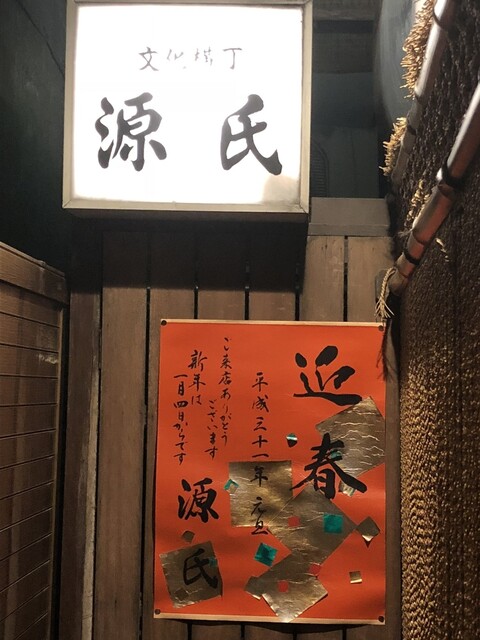 文化横丁
源氏
迎春
平成三十一年 元旦
ご来店ありがとう
ございます
新年は
一月四日からです
源氏